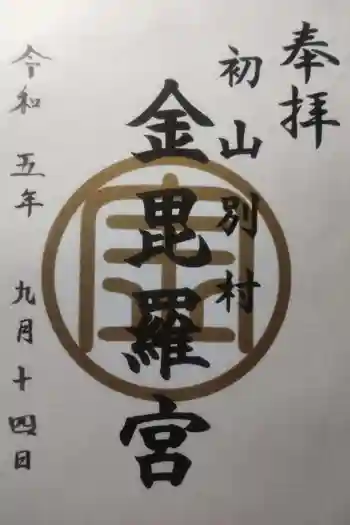 奉拝
初山別村
金毘羅宮
令和五年九月十四日